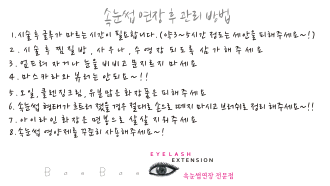 속눈썹 연장 후 관리 방법
1. 시술 후 글루가 마르는시간이 필요합니다. (약3~5시간 정도는 세안을 피해주세요~!)
2. 시술 후 찜질방, 사우나, 수영장 되도록 삼가해주세요
3. 엎드려 자거나 눈을 비비고 문지르지 마세요
4. 마스카라와 뷰러는 안되요~!!
5. 오일, 클렌징크림, 유분많은 화장품은 피해주세요
6. 속눈썹 형태가 흐트러 졌을 경우 절대로 손으로 떼지 마시고 브러쉬로 정리해주세요~!!
7. 아이라인 화장은 면봉으로 살살 지워주세요
8. 속눈썹 영양제를 꾸준히 사용해주세요~!
EYELASH
EXTENSION
BooBoo
속눈썹연장 전문점